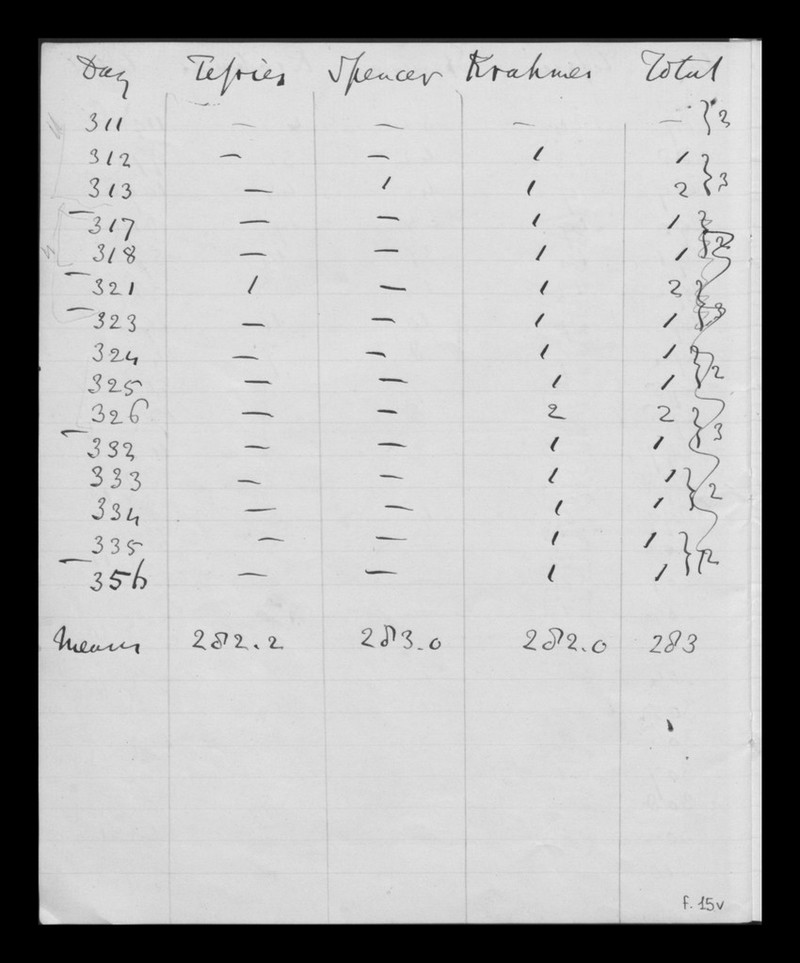 Day Tefries Spencer Krahmer Total
311 — — — — } 2
312 — — 1 1
313 — 1 1 2 } 3
317 — — 1 1
318 — — 1 1 } 2
321 1 — 1 2
323 — — 1 1 } 3
324 — — 1 1
325 — — 1 1 } 2
326 — — 2 2
332 — — 1 1 } 3
333 — — 1 1
334 — — 1 1 } 2
335 — — 1 1
356 — — 1 1 } 2
Means 282.2 283.0 282.0 283
f. 15v